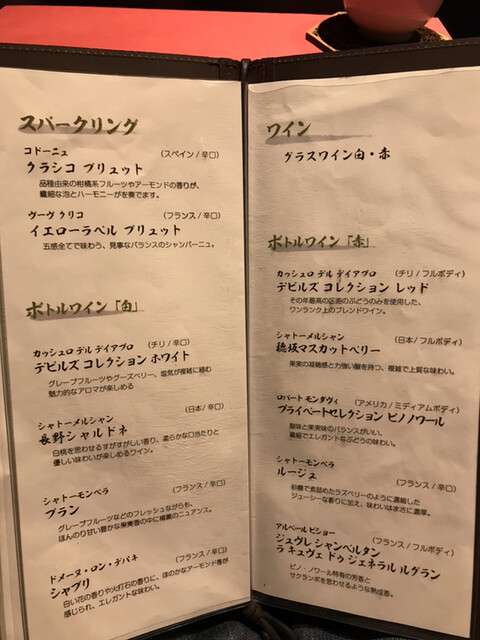 スパークリング
コドーニュ (スペイン / 辛口)
クラシコ ブリュット
品種由来の柑橘系フルーツやアーモンドの香りが、
繊細な泡とハーモニーがを奏でます。
ヴーヴ クリコ (フランス / 辛口)
イエローラベル ブリュット
五感全てで味わう、見事なバランスのシャンパーニュ。
ボトルワイン「白」
カッシェロ デル ディアブロ (チリ / 辛口)
デビルズ コレクション ホワイト
グレープフルーツやグーズベリー、塩気が複雑に絡む
魅力的なアロマが楽しめる
シャトーメルシャン (日本 / 辛口)
長野シャルドネ
白桃を思わせるすがすがしい香り、柔らかな口当たりと
優しい味わいが楽しめるワイン。
シャトーモンペラ (フランス / 辛口)
ブラン
グレープフルーツなどのフレッシュながらも、
ほんのり甘い豊かな果実香の中に樽裏のニュアンス。
ドメーヌ・ロン・デパキ (フランス / 辛口)
シャブリ
白い花の香りや火打石の香りに、ほのかなアーモンド香が
感じられ、エレガントな味わい。
ワイン
グラスワイン白・赤
ボトルワイン「赤」
カッシェロ デル ディアブロ (チリ / フルボディ)
デビルズ コレクション レッド
その年最高の区画のぶどうのみを使用した、
ワンランク上のブレンドワイン。
シャトーメルシャン (日本 / フルボディ)
穂坂マスカットベリー
果実の凝縮感と力強い酸を持つ、複雑で上質な味わい。
ロバート モンダヴィ (アメリカ / ミディアムボディ)
プライベートセレクション ピノノワール
酸味と果実味のバランスがいい、
繊細でエレガントなぶどうの味わい。
シャトーモンペラ (フランス / 辛口)
ルージュ
砂糖で煮詰めたラズベリーのように濃縮した
ジューシーな香りに加え、味わいはまさに濃厚。
アルベール ビショー (フランス / フルボディ)
ジュヴレ シャンベルタン
ラ キュヴェ ドゥ ジェネラル ルグラン
ピノ・ノワール特有の芳香と
サクランボを思わせるような熟成香。